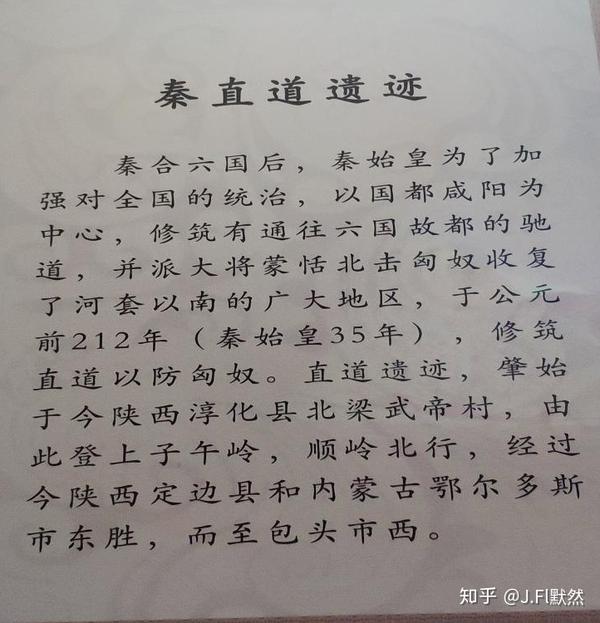 秦直道遗迹
秦合六国后，秦始皇为了加
强对全国的统治，以国都咸阳为
中心，修筑有通往六国故都的驰
道，并派大将蒙恬北击匈奴收复
了河套以南的广大地区，于公元
前212年（秦始皇35年），修筑
直道以防匈奴。直道遗迹，肇始
于今陕西淳化县北梁武帝村，由
此登上子午岭，顺岭北行，经过
今陕西定边县和内蒙古鄂尔多斯
市东胜，而至包头市西。
知乎 @J.Fl默然